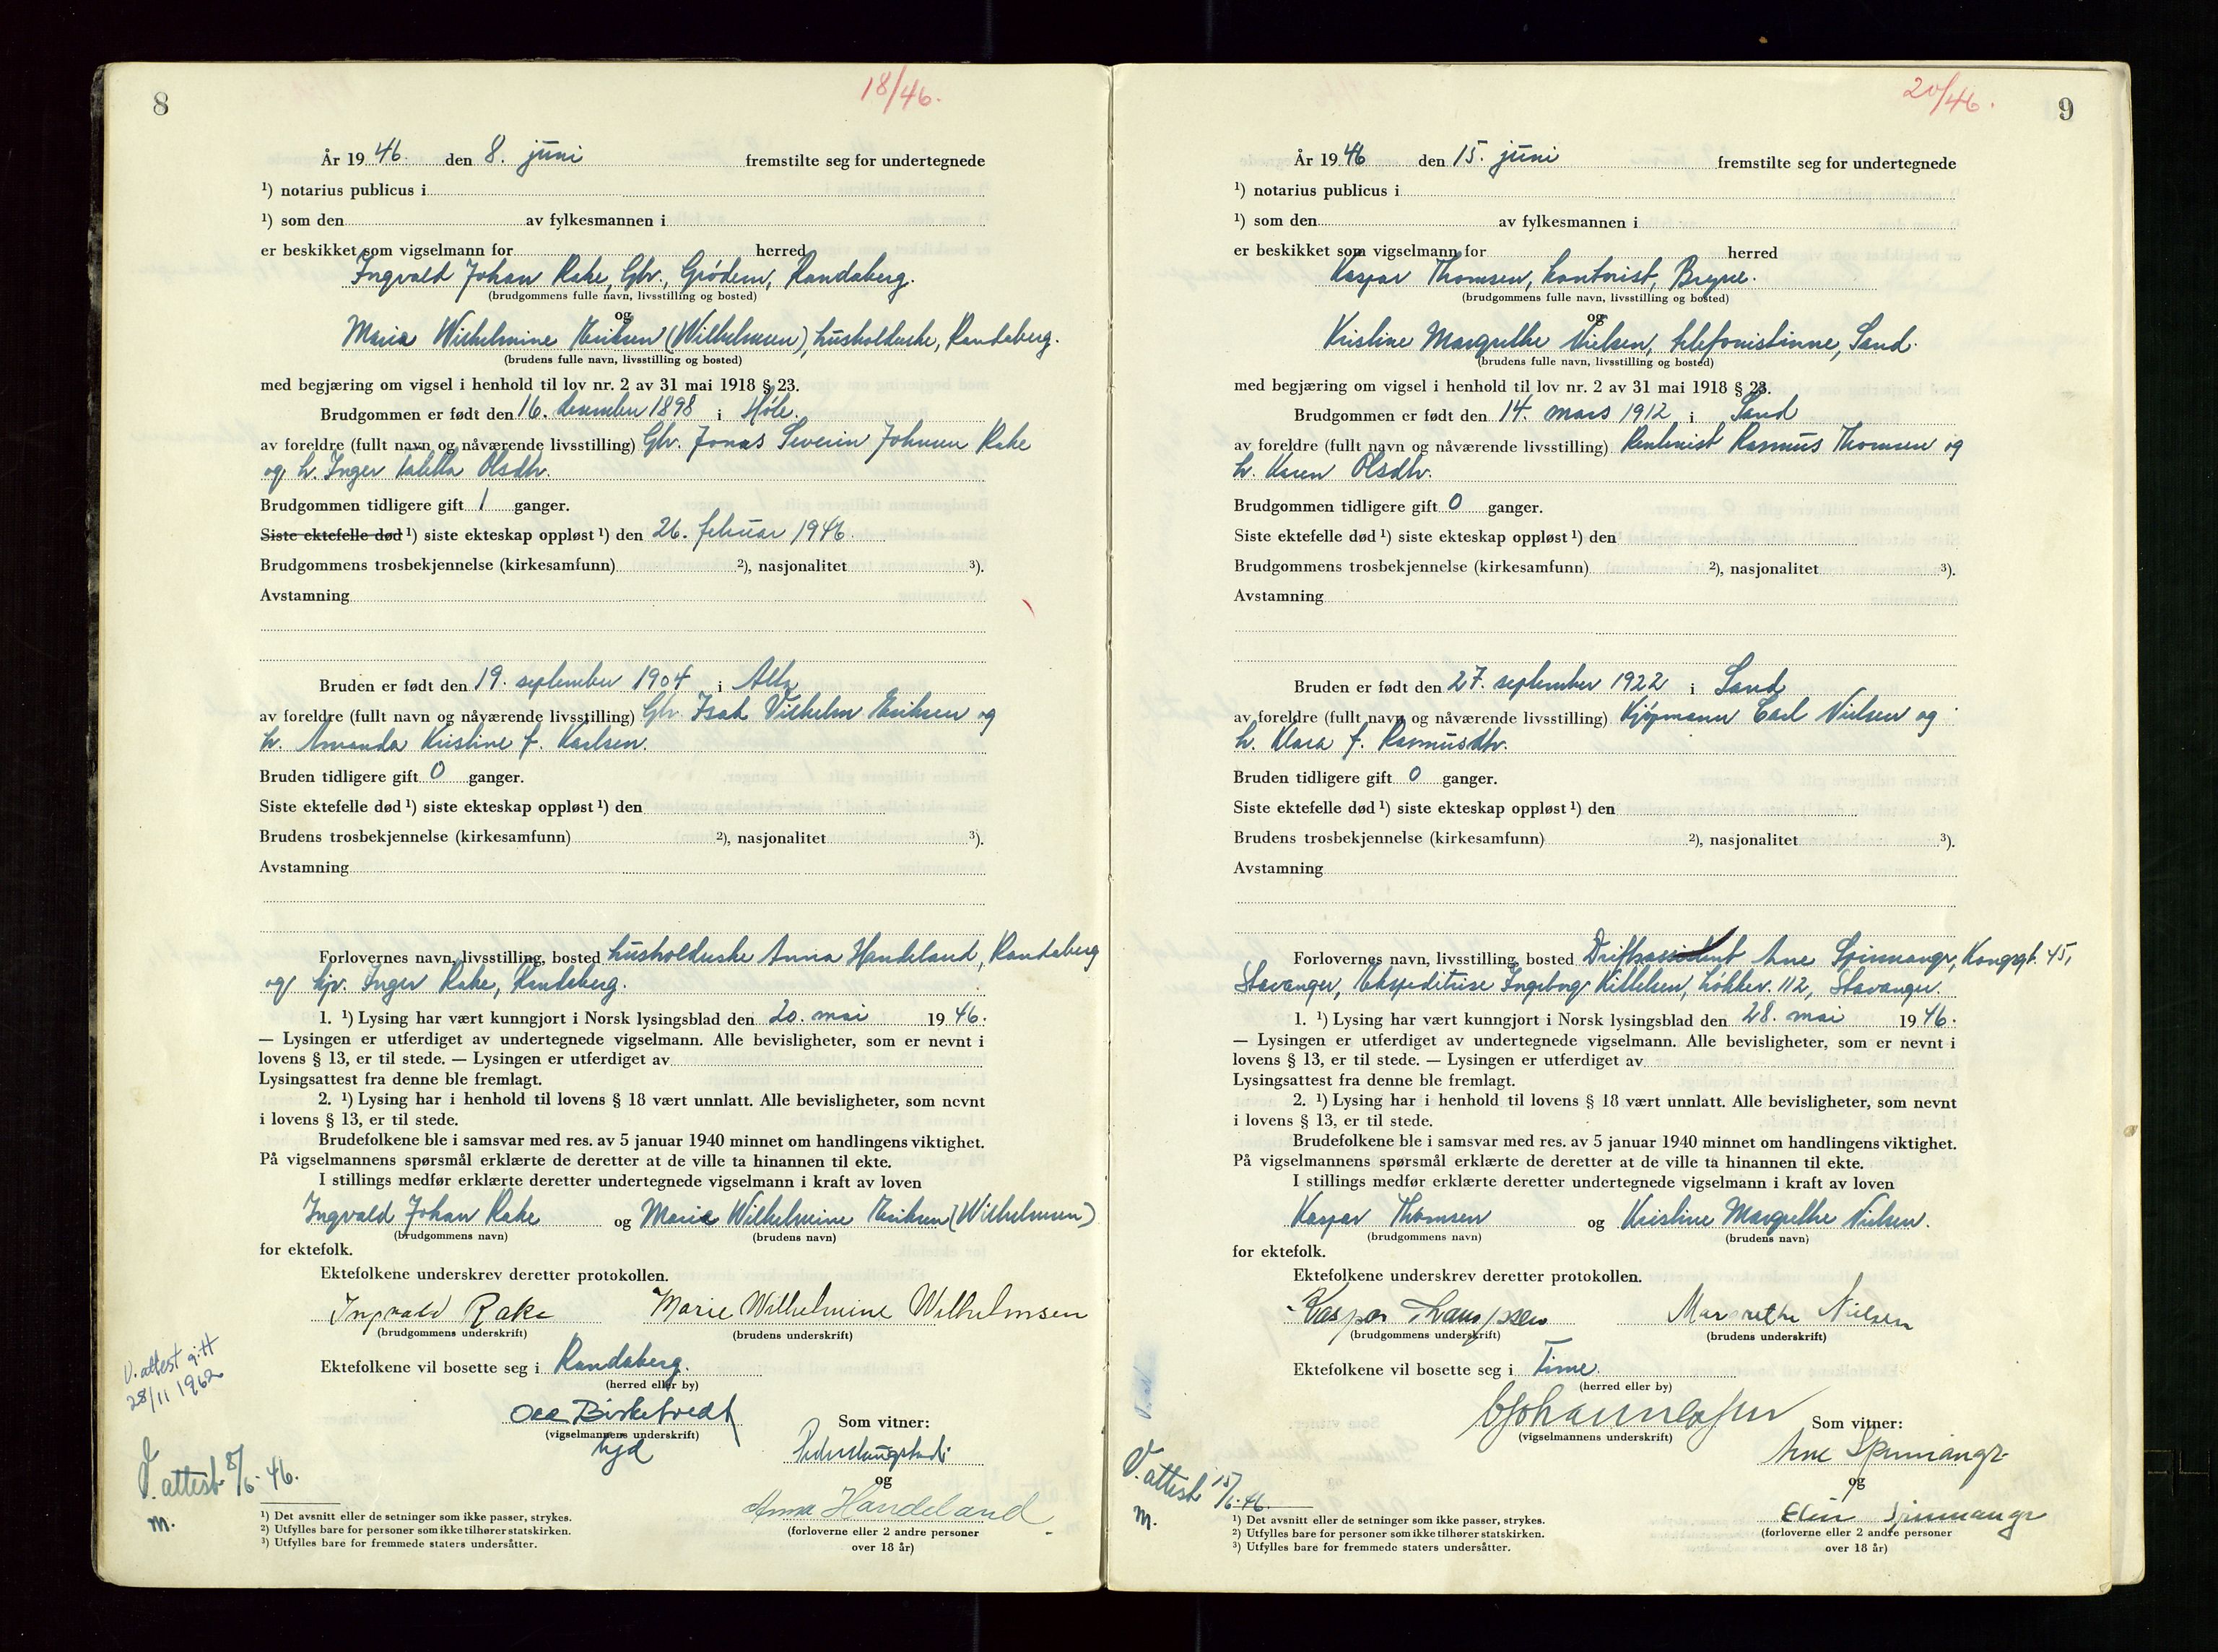 8
18/46.
År 19 46. den 8. juni fremstilte seg for undertegnede
¹) notarius publicus i
¹) som den av fylkesmannen i
er beskikket som vigselmann for herred
Ingvald Johan Rake, Gbr., Grødem, Randaberg.
(brudgommens fulle navn, livsstilling og bosted)
og
Marie Wilhelmine Eriksen (Wilhelmsen), husholderske, Randaberg.
(brudens fulle navn, livsstilling og bosted)
med begjæring om vigsel i henhold til lov nr. 2 av 31 mai 1918 § 23.
Brudgommen er født den 16. desember 1898 i Høle.
av foreldre (fullt navn og nåværende livsstilling) Gbr. Jonas Severin Johnsen Rake
og h. Inger Taletta Olsdtr.
Brudgommen tidligere gift 1 ganger.
Siste ektefelle død ¹) siste ekteskap oppløst ¹) den 26. februar 1946.
Brudgommens trosbekjennelse (kirkesamfunn) ²), nasjonalitet ³).
Avstamning
Bruden er født den 19. september 1904 i Alta
av foreldre (fullt navn og nåværende livsstilling) Gbr. Isak Vilhelm Eriksen og
h. Amanda Kristine f. Karlsen.
Bruden tidligere gift 0 ganger.
Siste ektefelle død ¹) siste ekteskap oppløst ¹) den
Brudens trosbekjennelse (kirkesamfunn) ²), nasjonalitet ³).
Avstamning
Forlovernes navn, livsstilling, bosted husholderske Anna Handeland, Randaberg
og hjv. Inger Rake, Randaberg.
1. ¹) Lysing har vært kunngjort i Norsk lysingsblad den 20. mai 19 46.
— Lysingen er utferdiget av undertegnede vigselmann. Alle bevisligheter, som er nevnt i
lovens § 13, er til stede. — Lysingen er utferdiget av
Lysingsattest fra denne ble fremlagt.
2. ¹) Lysing har i henhold til lovens § 18 vært unnlatt. Alle bevisligheter, som nevnt
i lovens § 13, er til stede.
Brudefolkene ble i samsvar med res. av 5 januar 1940 minnet om handlingens viktighet.
På vigselmannens spørsmål erklærte de deretter at de ville ta hinannen til ekte.
I stillings medfør erklærte deretter undertegnede vigselmann i kraft av loven
Ingvald Johan Rake og Marie Wilhelmine Eriksen (Wilhelmsen)
(brudgommens navn) (brudens navn)
for ektefolk.
Ektefolkene underskrev deretter protokollen.
Ingvald Rake Marie Wilhelmine Wilhelmsen
(brudgommens underskrift) (brudens underskrift)
V. attest gitt
28/11 1962
Ektefolkene vil bosette seg i Randaberg.
(herred eller by)
Birketvedt
(vigselmannens underskrift)
Som vitner:
og
Anna Handeland.
(forloverne eller 2 andre personer
over 18 år)
V. attest 8/6-46.
m.
¹) Det avsnitt eller de setninger som ikke passer, strykes.
²) Utfylles bare for personer som ikke tilhører statskirken.
³) Utfylles bare for fremmede staters undersåtter.
20/46.
9
År 19 46 den 15. juni fremstilte seg for undertegnede
¹) notarius publicus i
¹) som den av fylkesmannen i
er beskikket som vigselmann for herred
Kaspar Thomsen, kontorist, Bryne.
(brudgommens fulle navn, livsstilling og bosted)
og
Kristine Margrethe Nielsen, telefonistinne, Sand.
(brudens fulle navn, livsstilling og bosted)
med begjæring om vigsel i henhold til lov nr. 2 av 31 mai 1918 § 23.
Brudgommen er født den 14. mars 1912 i Sand
av foreldre (fullt navn og nåværende livsstilling) Rentenist Rasmus Thomsen og
h. Karen Olsdtr.
Brudgommen tidligere gift 0 ganger.
Siste ektefelle død ¹) siste ekteskap oppløst ¹) den
Brudgommens trosbekjennelse (kirkesamfunn) ²), nasjonalitet ³).
Avstamning
Bruden er født den 27. september 1922 i Sand
av foreldre (fullt navn og nåværende livsstilling) Kjøpmann Carl Nielsen og
h. Klara f. Rasmusdtr.
Bruden tidligere gift 0 ganger.
Siste ektefelle død ¹) siste ekteskap oppløst ¹) den
Brudens trosbekjennelse (kirkesamfunn) ²), nasjonalitet ³).
Avstamning
Forlovernes navn, livsstilling, bosted Driftsassistent Arne Spinnangr, Kongsgt. 45,
Stavanger, Ekspeditrise Ingeborg Kittelsen, Løkkev. 112, Stavanger.
1. ¹) Lysing har vært kunngjort i Norsk lysingsblad den 28. mai 19 46.
— Lysingen er utferdiget av undertegnede vigselmann. Alle bevisligheter, som er nevnt i
lovens § 13, er til stede. — Lysingen er utferdiget av
Lysingsattest fra denne ble fremlagt.
2. ¹) Lysing har i henhold til lovens § 18 vært unnlatt. Alle bevisligheter, som nevnt
i lovens § 13, er til stede.
Brudefolkene ble i samsvar med res. av 5 januar 1940 minnet om handlingens viktighet.
På vigselmannens spørsmål erklærte de deretter at de ville ta hinannen til ekte.
I stillings medfør erklærte deretter undertegnede vigselmann i kraft av loven
Kaspar Thomsen og Kristine Margrethe Nielsen.
(brudgommens navn) (brudens navn)
for ektefolk.
Ektefolkene underskrev deretter protokollen.
Kaspar Margrethe Nielsen
(brudgommens underskrift) (brudens underskrift)
Ektefolkene vil bosette seg i Time.
(herred eller by)
(vigselmannens underskrift)
Som vitner:
Arne Spinnangr
og
Elin Spinnangr
(forloverne eller 2 andre personer
over 18 år)
V. attest 15/6-46.
m.
¹) Det avsnitt eller de setninger som ikke passer, strykes.
²) Utfylles bare for personer som ikke tilhører statskirken.
³) Utfylles bare for fremmede staters undersåtter.